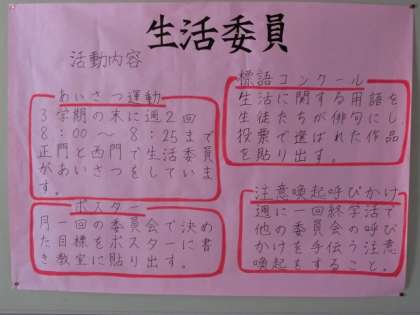 生活委員
活動内容
あいさつ運動
3学期の末に週2回
8:00～8:25まで
正門と西門で生活委員
があいさつをしていま
す。
ポスター
月一回の委員会で決め
た目標をポスターに書
き教室に貼り出す。
標語コンクール
生活に関する用語を
生徒たちが俳句にし、
投票で選ばれた作品
を貼り出す。
注意喚起呼びかけ
週に一回終学活で
他の委員会の呼び
かけを手伝う注意
喚起をすること。